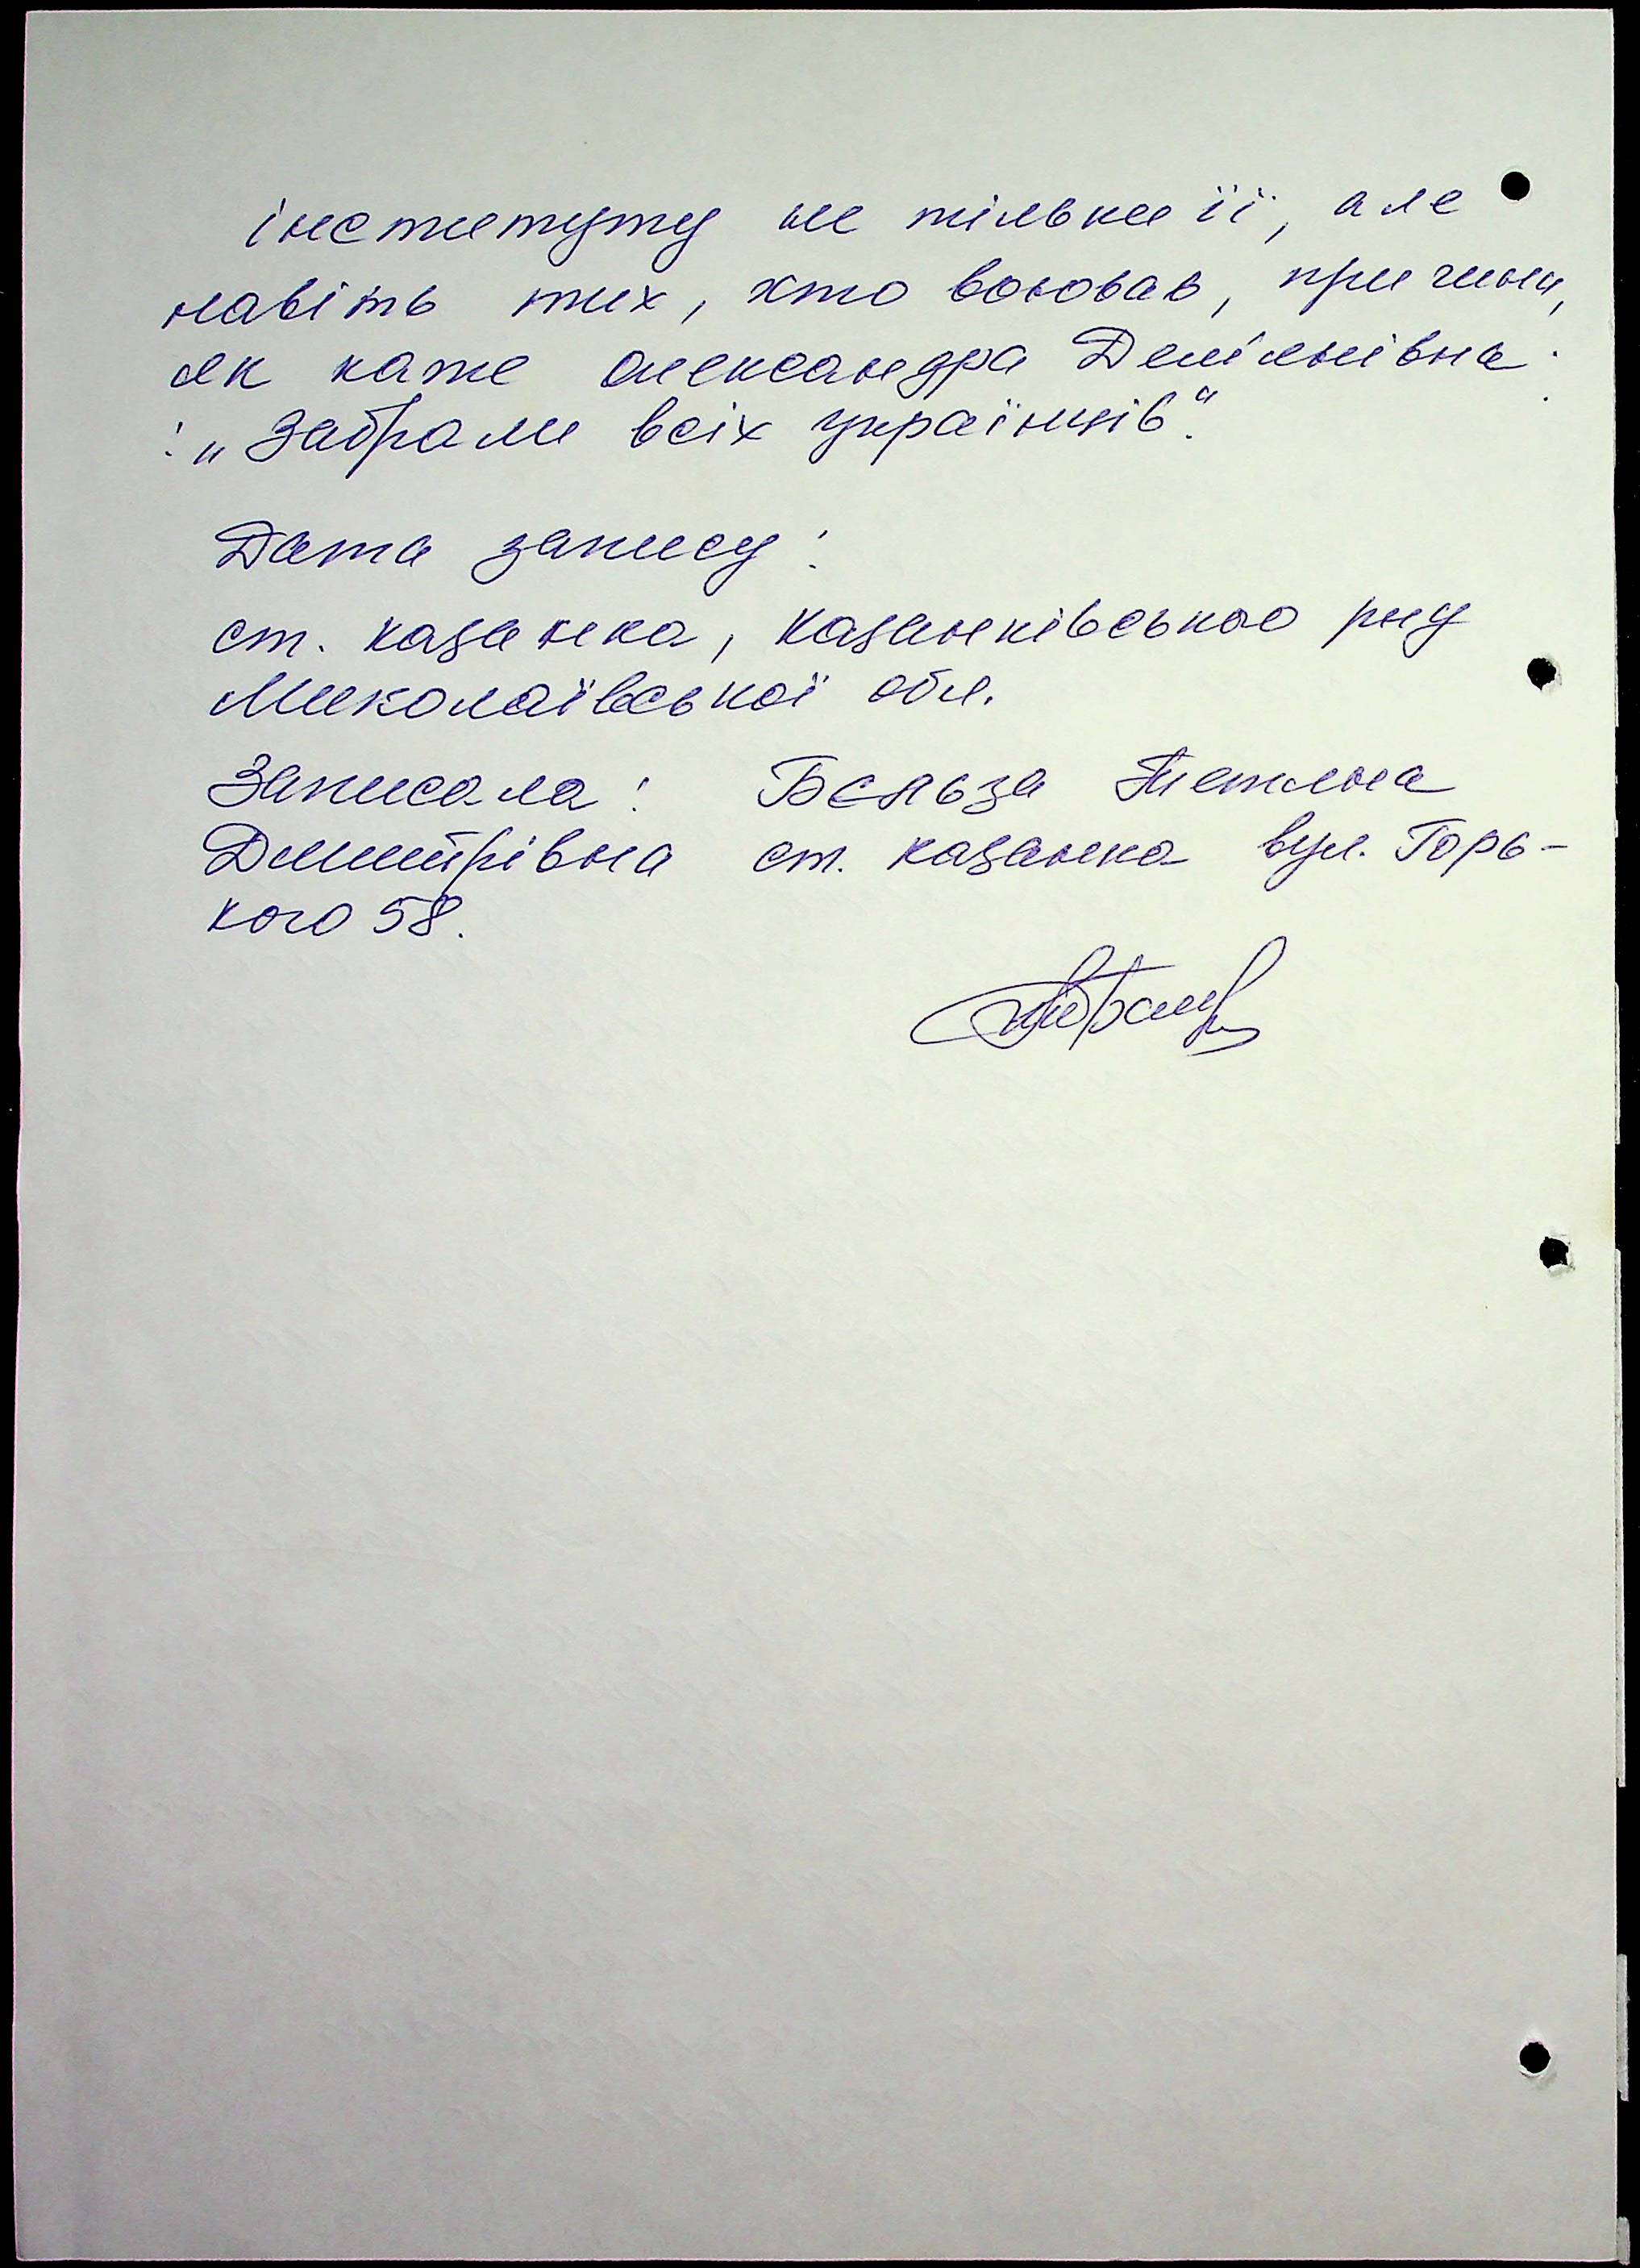 інститутy не тільки її, але
навіть тих, хто воював, причини,
як каже Олександра Дем'янівна
: „Забрали всіх українців".
Дата запису:
ст. Казанка, Казанківського р-ну
Миколаївської обл.
Записала: Бєльза Тетяна
Дмитрівна ст. Казанка вул. Горь-
кого 58.